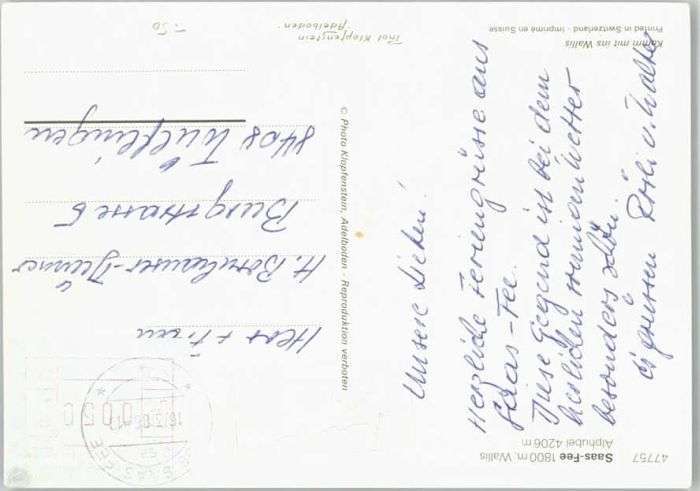 47757
Saas-Fee 1800 m, Wallis
Alphubel 4206 m
Unsere Lieben!
Herzliche Feriengrüsse aus
Saas-Fee.
Diese Gegend ist bei dem
herrlichen Sommerwetter
besonders schön.
Es grüssen Rösli u. Walter
Komm mit ins Wallis
Printed in Switzerland · Imprimé en Suisse
© Photo Klopfenstein, Adelboden · Reproduktion verboten
Herr + Frau
H. Bosshauser-Junner
Burgstrasse 6
8408 Wülflingen
Klopfenstein
Adelboden
-.50
0050